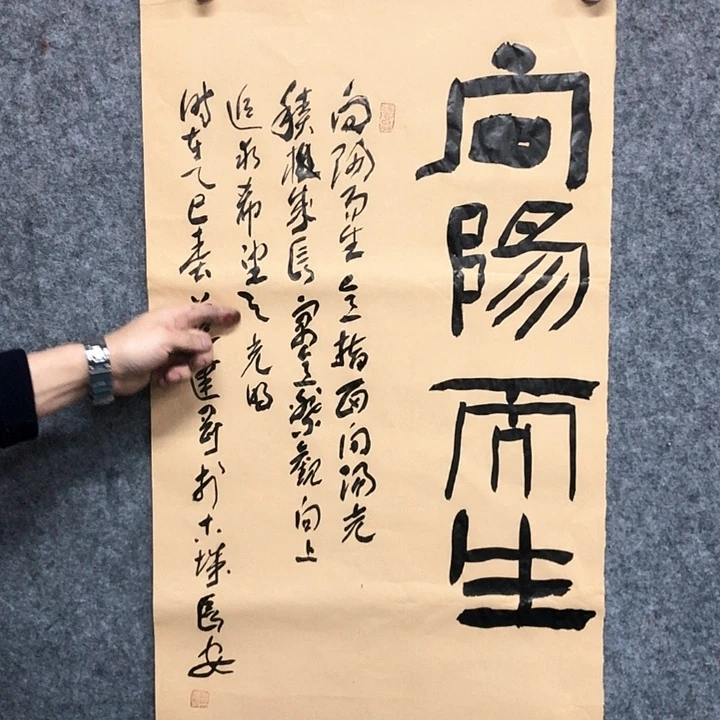 向陽而生
向陽而生意指面向陽光
積極成長寓意樂觀向上
追求希望之光明
時在乙巳春 建 於古城長安